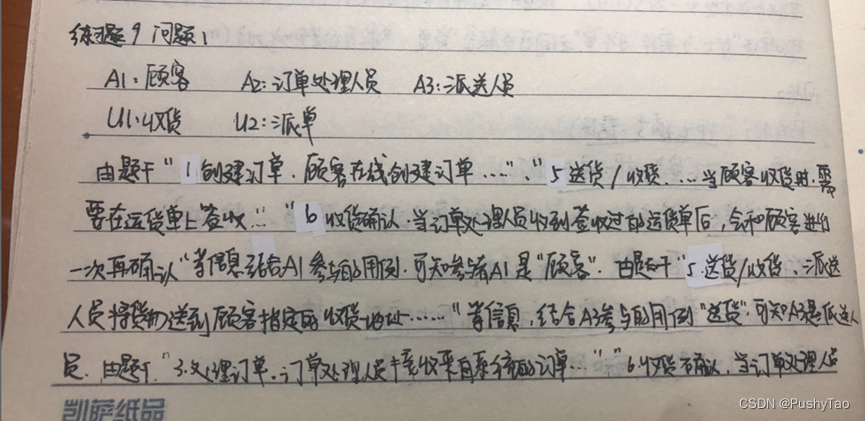 练习题9 问题1
A1:顾客 A2:订单处理人员 A3:派送人员
U1:收货 U2:派单
由题干“1创建订单.顾客在线创建订单……”、“5送货/收货.…当顾客收货时,需
要在运货单上签收…”“6收货确认.当订单处理人员收到签收过的运货单后,会和顾客进行
一次再确认”等信息结合A1参与的用例.可知参与者A1是“顾客”.由题干“5.送货/收货.派送
人员将货物送到顾客指定的收货地址……”等信息,结合A3参与的用例“送货”,可知A3是派送人
员.由题干,“3.处理订单.订单处理人员 收来自系统的订单…”“6.收货确认,当订单处理人员
凯萨纸品
CSDN @PushyTao